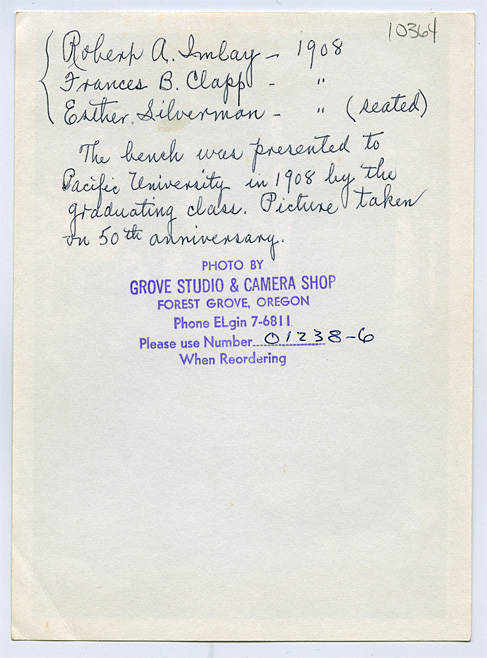 10364
Robert A. Imlay - 1908
Frances B. Clapp - "
Esther Silverman - " (seated)
The bench was presented to
Pacific University in 1908 by the
graduating class. Picture taken
on 50th anniversary.
PHOTO BY
GROVE STUDIO & CAMERA SHOP
FOREST GROVE, OREGON
Phone ELgin 7-6811
Please use Number 01238-6
When Reordering